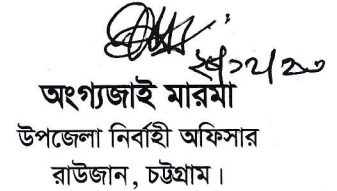 অংগ্যজাই মারমা
উপজেলা নির্বাহী অফিসার
রাউজান, চট্টগ্রাম।